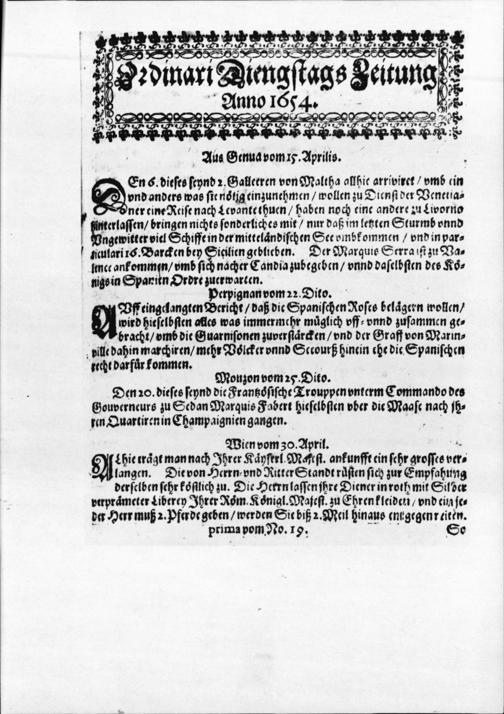 Ordinari Diengstags Zeitung
Anno 1654.
Aus Genua vom 15. Aprilis.
DEn 6. dieses seynd 2. Galleeren von Maltha allhie arriviret / vmb ein
vnd anders was sie nötig einzunehmen / wollen zu Dienst der Venetia-
ner eine Reise nach Levante thuen / haben noch eine andere zu Livorno
hinterlassen / bringen nichts sonderliches mit / nur daß im letzten Sturmb vnnd
Vngewitter viel Schiffe in der mittelländischen See vmbkommen / vnd in par-
ticulari 16. Barcken bey Sicilien geblieben. Der Marquis Serra ist zu Va-
lence ankommen / vmb sich nacher Candia zubegeben / vnnd daselbsten des Kö-
nigs in Spanien Ordre zuerwarten.
Perpignan vom 22. Dito.
AVff eingelangten Bericht / daß die Spanischen Roses belägern wollen /
wird hieselbsten alles was immermehr müglich vff- vnnd zusammen ge-
bracht / vmb die Guarnisonen zuverstärcken / vnd der Graff von Marin-
ville dahin marchiren / mehr Völcker vnnd Secourß hinein ehe die Spanischen
recht darfür kommen.
Mouzon vom 25. Dito.
Den 20. dieses seynd die Frantzösische Trouppen vnterm Commando des
Gouverneurs zu Sedan Marquis Fabert hieselbsten vber die Maase nach ih-
ren Quartiren in Champaignien gangen.
Wien vom 30. April.
ALhie trägt man nach Ihrer Käyserl. Majest. ankunfft ein sehr grosses ver-
langen. Die von Herrn- vnd Ritter Standt rüsten sich zur Empfahung
derselben sehr köstlich zu. Die Herrn lassen ihre Diener in roth mit Silber
verprämeter Liberey Ihrer Röm. Königl. Majest. zu Ehren kleiden / vnd ein je-
der Herr muß 2. Pferde geben / werden Sie biß 2. Meil hinaus entgegen reiten.
prima vom No. 19. So